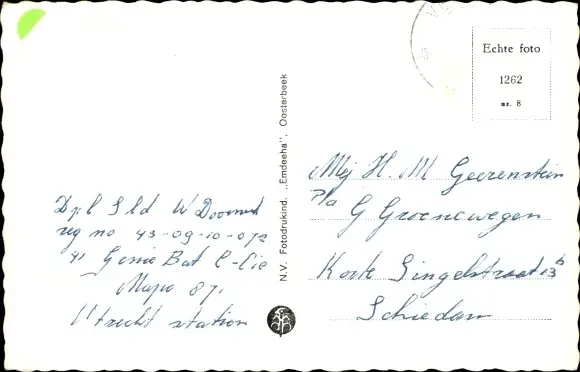 Echte foto
1262
nr. 8
Dpl Sld W Doorn
reg no 43-09-10-072
41 Genie Bat C-Cie
Mapo 871
Utrecht station
N.V. Fotodrukind. „Emdeeha”, Oosterbeek
Mej H. M Geerenstein
P/a G Groenewegen
Korte Singelstraat 13b
Schiedam